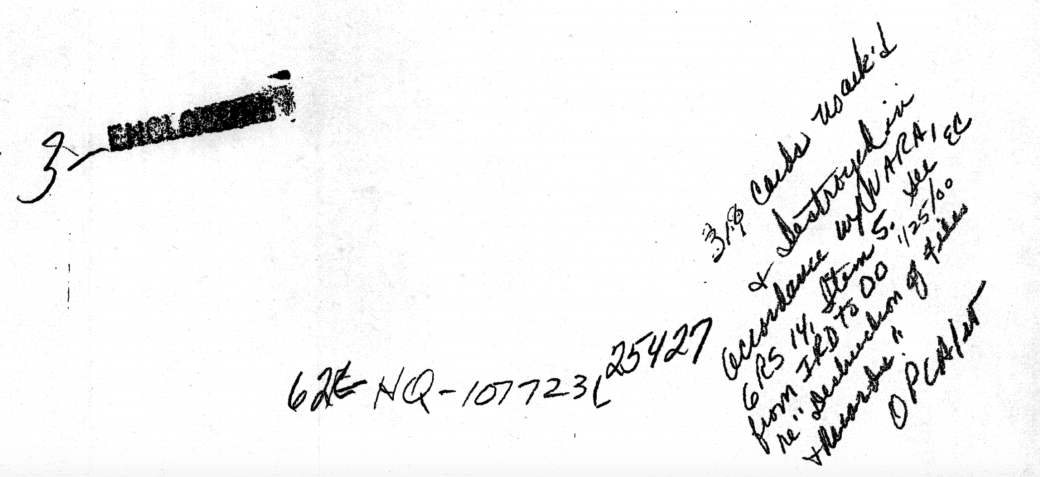 3
ENCLOSURE
3x9 Cards Mark'd
& Destroyed in
accordance w/NARA,
GRS 14, Item 5. See EC
from IRD to OO 1/25/00
re "Destruction of Files
& Records".
62E HQ-107723(25427